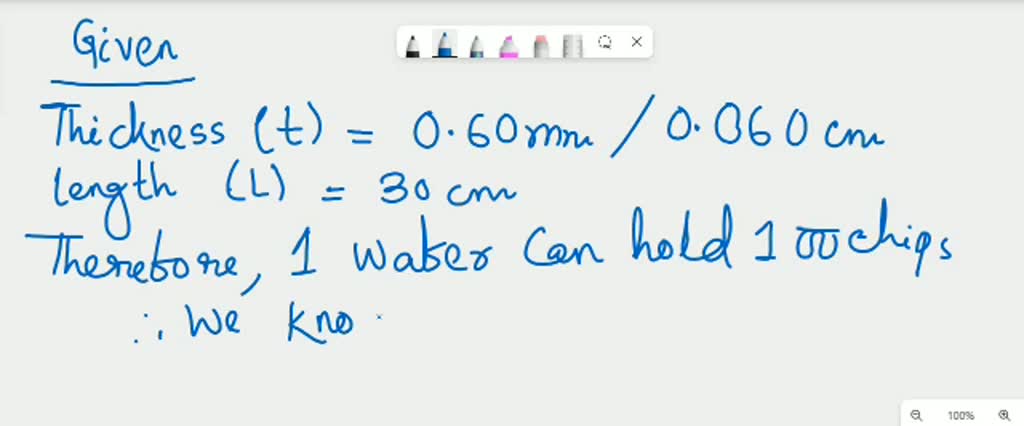 Given
Thickness (t) = 0.60mm / 0.060 cm
length (L) = 30 cm
Therefore, 1 wafer can hold 100 chips
∴ We kno
100%